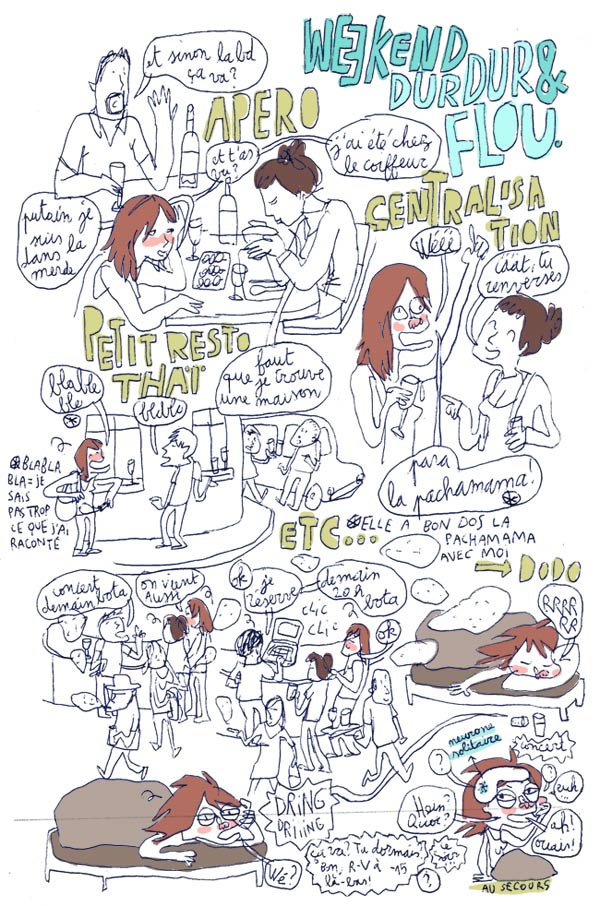 WEEKEND
DUR DUR &
FLOU.
et sinon la bd
ça va?
APERO
et t'as
vu?
j'ai été chez
le coiffeur
putain je
suis
dans la
merde
CENTRALISA
TION
Wééé
ééét, tu
renverses
PETIT RESTO
THAÏ
faut
que je trouve
une maison
blable
ble
blabla
BLABLA
BLA = JE
SAIS
PAS TROP
CE QUE J'AI
RACONTÉ
para
la pachamama!
ELLE A BON DOS LA
PACHAMAMA
AVEC MOI
ETC...
DODO
concert
demain bota
on vient
aussi
ok
je
reserve
demain
20h
bota
clic
clic
ok
RRRR
RR
DRING
DRIIING
Wé?
ça va? Tu dormais?
Bon, R-V à -15
là-bas!
ce
soir
?
neurone
solitaire
?
concert
Hein?
Quoi?
euh
...
ah!
ouais!
AU SECOURS